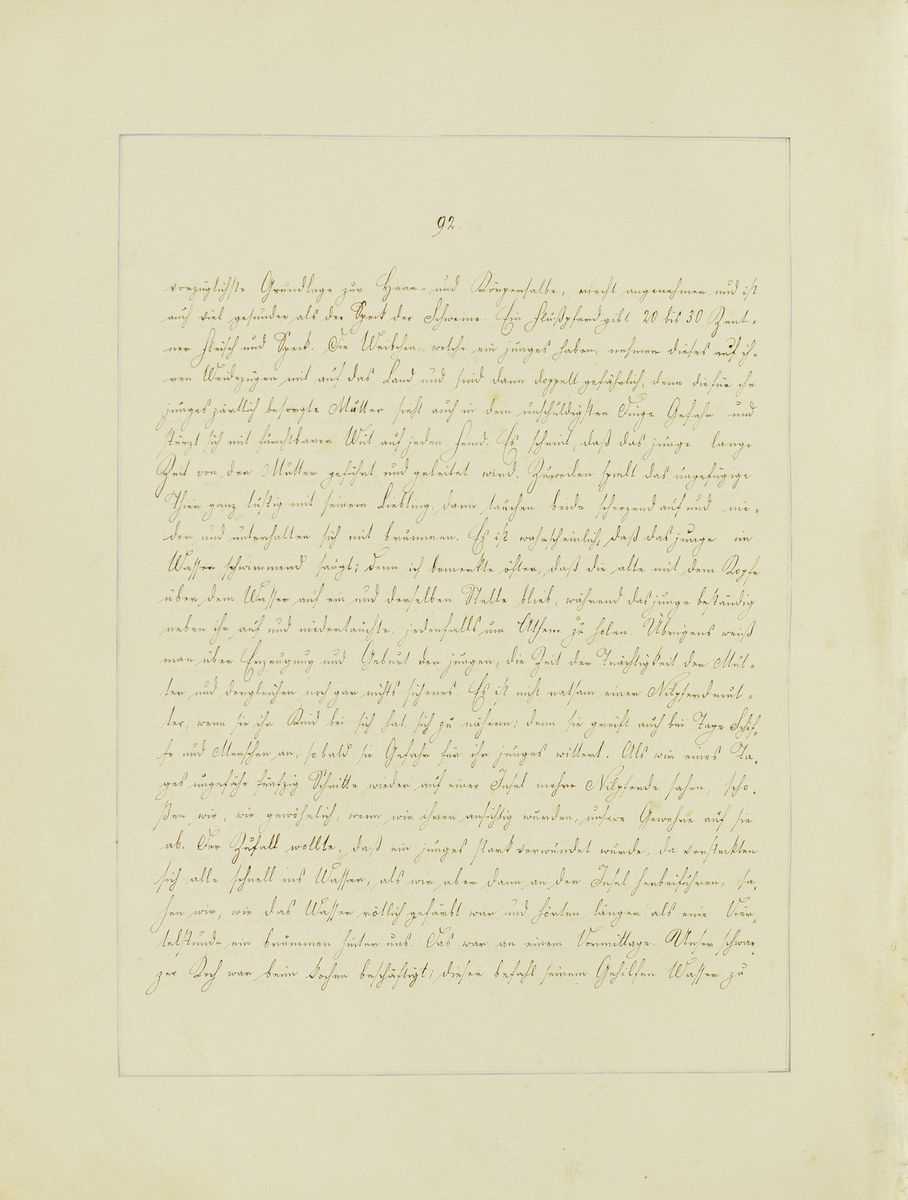 92.
vorzüglichste Grundlage zur Haar- und Körpersalbe, riecht angenehmer und ist
auch viel gesunder als der Speck der Schweine. Ein Flußpferd gibt 20 bis 30 Zent-
ner Fleisch und Speck. Die Weibchen, welche ein junges haben, nehmen dieses auf ih-
ren Weidezügen mit auf das Land und sind dann doppelt gefährlich, denn die für ihr
junges zärtlich besorgte Mutter sieht auch in dem unschuldigsten Dinge Gefahr und
stürzt sich mit furchtbarer Wut auf jeden Feind. Es scheint, daß das junge lange
Zeit von der Mutter geführt und geleitet wird. Zuweilen spielt das ungefügige
Thier ganz lustig mit seinem Liebling, dann tauchen beide scherzend auf und nie-
der und unterhalten sich mit brummen. Es ist wahrscheinlich, daß das junge im
Wasser schwimmend saugt; denn ich bemerkte öfter, daß die alte mit dem Kopfe
über dem Wasser auf ein und derselben Stelle blieb, während das junge beständig
neben ihr auf und niedertauchte, jedenfalls um Athem zu holen. Übrigens weiß
man über Erzeugung und Geburt der jungen, die Zeit der Trächtigkeit der Mut-
ter und dergleichen noch gar nichts sicheres. Es ist nicht ratsam einer Nilpferdmut-
ter, wenn sie ihr Kind bei sich hat, sich zu nähern; denn sie greift auch bei Tage Schif-
fe und Menschen an, sobald sie Gefahr für ihr junges wittert. Als wir eines Ta-
ges ungefähr fünfzig Schritte wieder auf einer Insel mehre Nilpferde sahen, scho-
ßen wir, wie gewöhnlich, wenn wir ihrer ansichtig wurden, unsere Gewehre auf sie
ab. Der Zufall wollte, daß ein junges stark verwundet wurde, da versteckten
sich alle schnell ins Wasser, als wir aber dann an der Insel herbeifuhren, sa-
hen wir, wie das Wasser rötlich gefärbt war und hörten länger als eine Vier-
telstunde ein brummen hinter uns. Das war an einem Vormittage. Unser schwar-
zer Koch war beim kochen beschäftigt; dieser befahl seinem Gehilfen Wasser zu